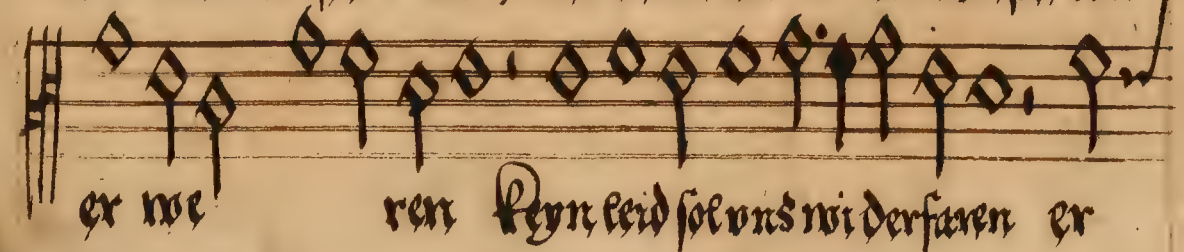 er we ren keyn leid sol vns wi derfaren er